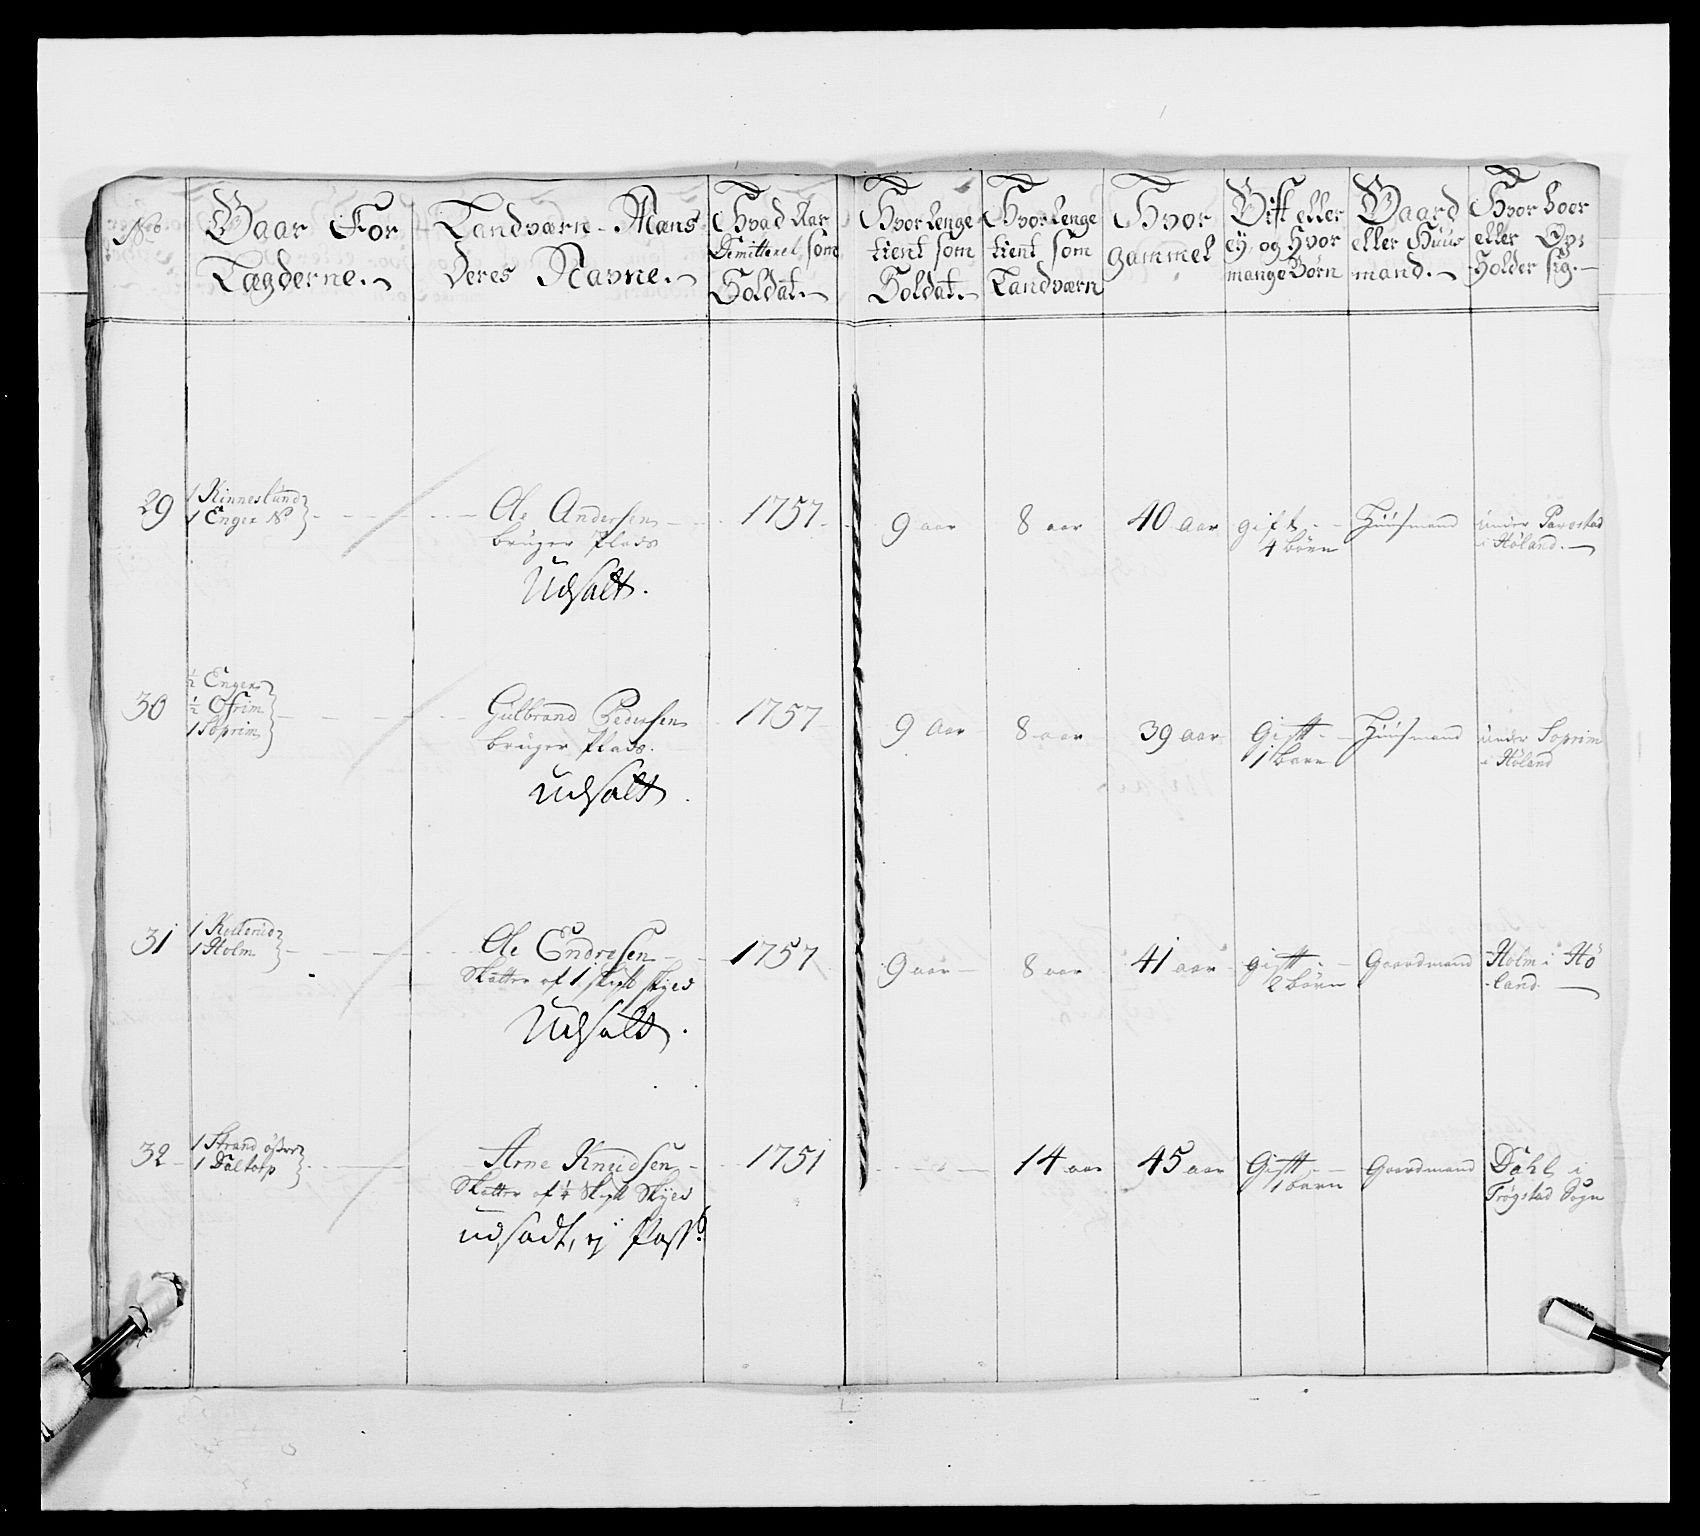 No
Gaar For
Lægderne.
Landværn-Mæns
Deres Navne.
Hvad Aar
Dimitteret som
Soldat.
Hvor lenge
tient som
Soldat.
Hvor lenge
tient som
Landværn
Hvor
Gammel
Gift eller
ey, og hvor
mange Børn
Gaard
eller Huus
mand.
Hvor boer
eller Op-
holder sig.
29
1 Kinneslund
1 Enger
Ole Andersen
bruger Plads
Udsatt.
1757
9 aar
8 aar
40 aar
gift
4 børn
Huusmand
under
i Høland.
30
½ Enger
½ Ofrim
1 Soprim
Gulbrand Pedersen
bruger Plads.
udsatt
1757
9 aar
8 aar
39 aar
Gift
1 barn
Huusmand
under Soprim
i Høland
31
1 Kollerud
1 Holm
Ole Endresen
Skatter af 1 skp skyld
Udsatt.
1757
9 aar
8 aar
41 aar
gift
2 børn
Gaardmand
Holm i Hø
land
32
1 Strand øster
1 Daltorp
Arne Knudsen
Skatter af ¼ Skp Skyld
udsadt, ej Pass:
1751
14 aar
45 aar
Gift
1 barn
Gaardmand
Dahl i
Trøgstad Sogn